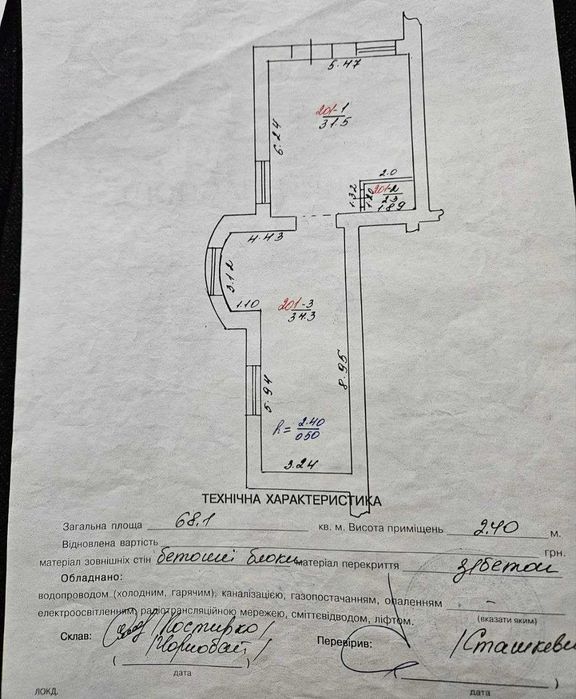 5.47
201-1
31.5
6.24
2.0
1.32
1.20
201-2
2.3
1.89
4.43
3.12
1.10
201-3
34.3
8.95
5.94
h= 2.40
0.50
3.24
ТЕХНІЧНА ХАРАКТЕРИСТИКА
Загальна площа 68.1 кв. м. Висота приміщень 2.40 м.
Відновлена вартість грн.
матеріал зовнішніх стін бетонні блоки матеріал перекриття з/бетон
Обладнано:
водопроводом (холодним, гарячим), каналізацією, газопостачанням, опаленням –
електроосвітленням, радіотрансляційною мережею, сміттєвідводом, ліфтом.
(вказати яким)
Склав: /Постирко/ Перевірив: /Сташкеви
/Чорнобай/
( ) ( )
дата дата
ЛОКД.